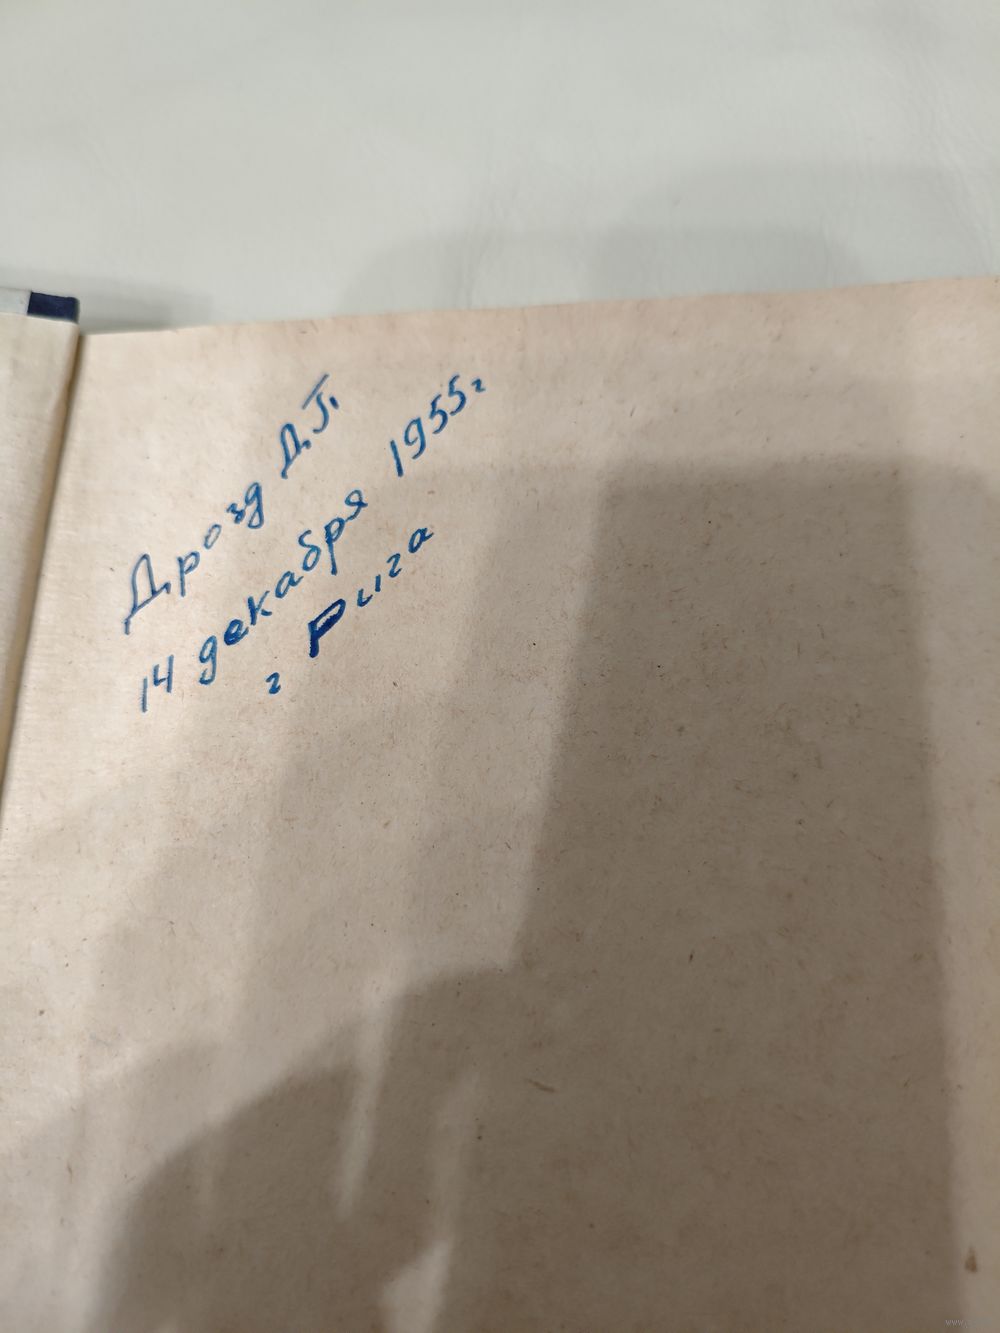 Дрозд Д.П.
14 декабря 1955г
г Рига